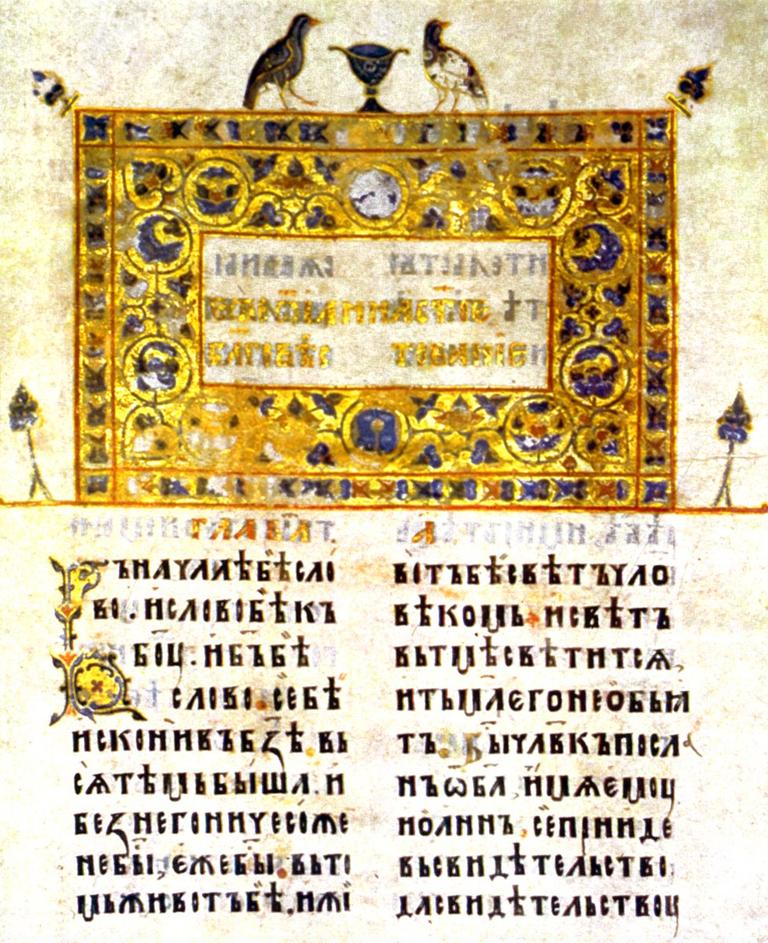 глава а
Въначалиѣбѣсло
во.исловобѣкъ
боу.ибъбѣ
слово.себѣ
исконивъбꙁѣ.вь
сѧтѣмьбыша.и
беꙁнегониѵесоже
небы,єжебы.вьто
мьживотъбѣ.ижі
вотъбѣсвѣтъѵло
вѣкомь.исвѣтъ
вьтмѣсвѣтитсѧ,
итьмаєгонеобьꙗ
тъ.Быѵлвкъпосла
нъѡба,имѧємоу
иоаннъ.сеприиде
въсвидѣтельство.
дасвидѣтельствоу